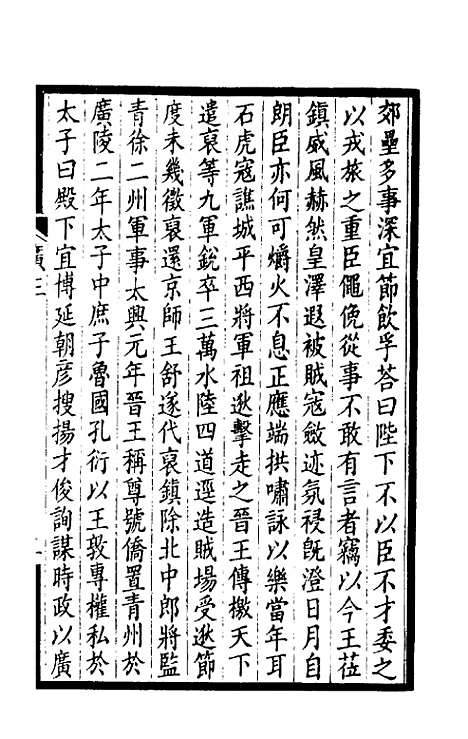 郊壘多事深宜節飲孚荅曰陛下不以臣不才委之
以戎旅之重臣僶俛從事不敢有言者竊以今王莅
鎮威風赫然皇澤遐被賊寇斂迹氛祲旣澄日月自
朗臣亦何可爝火不息正應端拱嘯詠以樂當年耳
石虎寇譙城平西將軍祖逖擊走之晉王傳檄天下
遣裒等九軍銳卒三萬水陸四道逕造賊場受逖節
度未幾徵裒還京師王舒遂代裒鎮除北中郎將監
青徐二州軍事太興元年晉王稱尊號僑置青州於
廣陵二年太子中庶子魯國孔衍以王敦專權私於
太子曰殿下宜博延朝彦搜揚才俊詢謀時政以廣
廣三